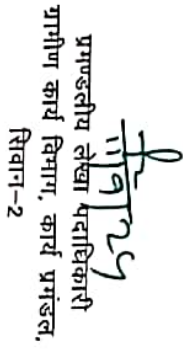 11/9/24
प्रमण्डलीय लेखा पदाधिकारी
ग्रामीण कार्य विभाग, कार्य प्रमंडल,
सिवान-2